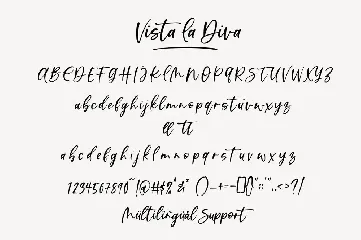 Vista la Diva
ABCDEFGHIJKLMNOPQRSTUVWXYZ
abcdefghijklmnopqrstuvwxyz
ll tt
abcdefghijklmnopqrstuvwxyz
1234567890~!@#$%^&* ()_+-=[]{}":;'",.<>?/
Multilingual Support